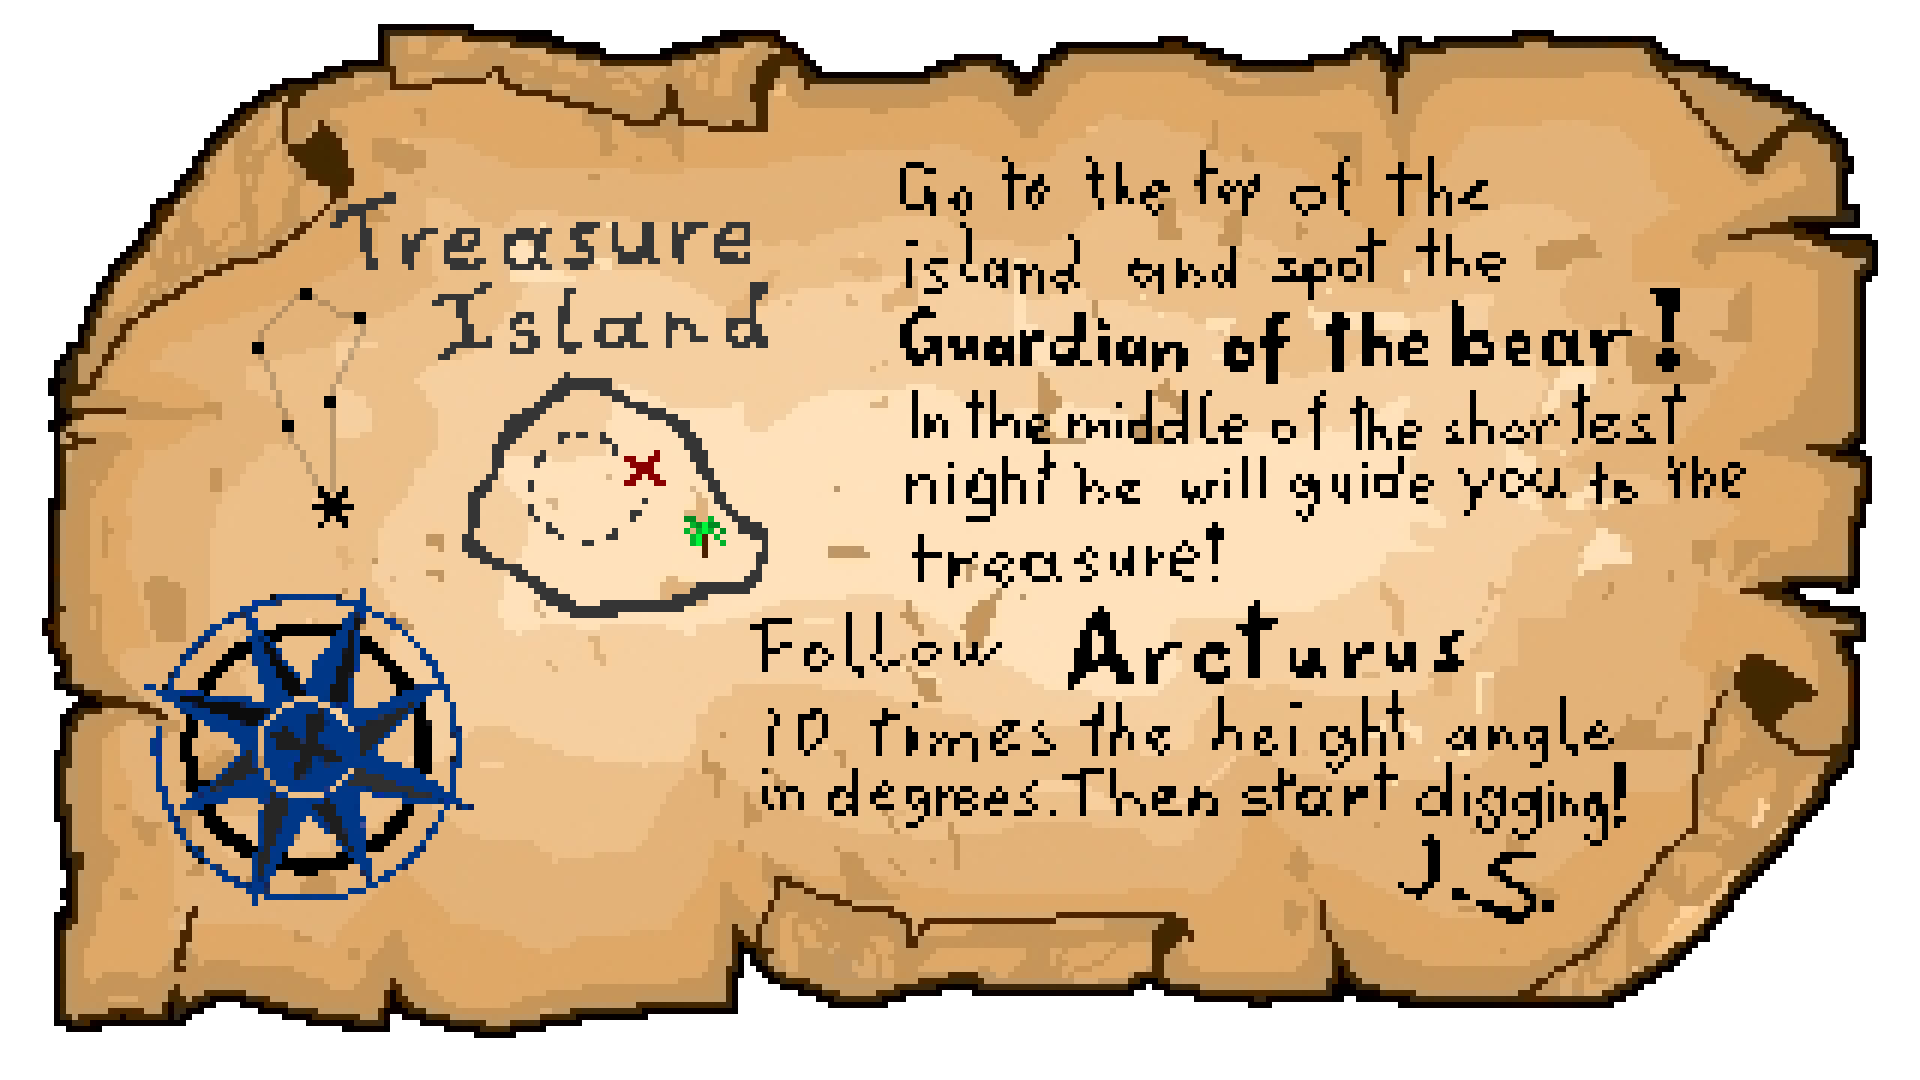 Treasure
Island
Go to the top of the
island and spot the
Guardian of the bear!
In the middle of the shortest
night he will guide you to the
treasure!
Follow Arcturus
10 times the height angle
in degrees. Then start digging!
J.S.